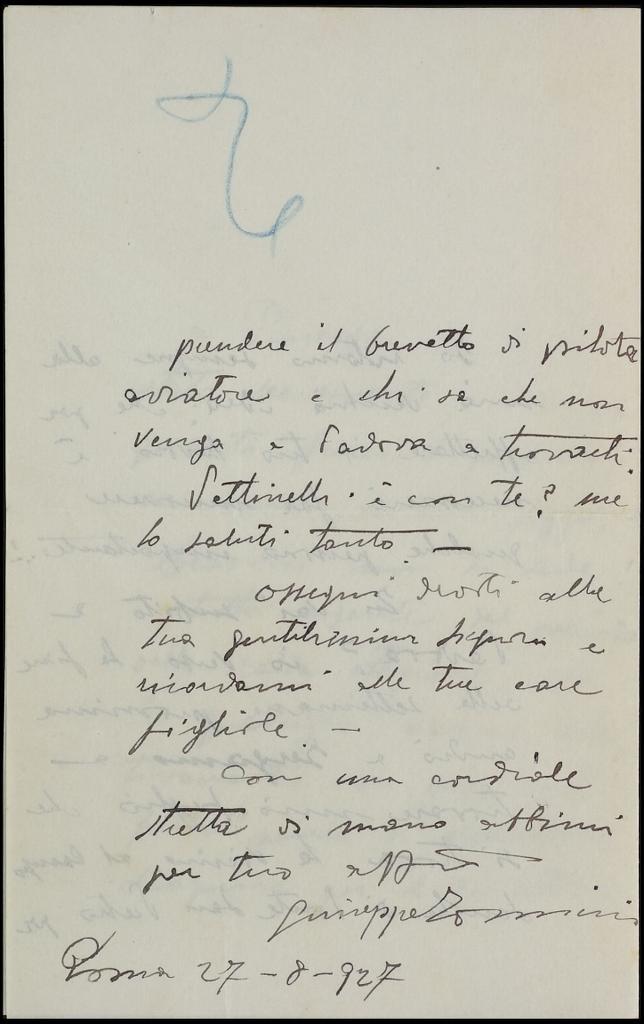 prendere il brevetto di pilota
aviatore e chi sa che non
venga a Padova a trovarti.
Pettinelli è con te? me
lo saluti tanto —
Ossequi devoti alla
tua gentilissima Signora e
ricordami alle tue care
figliole —
Con una cordiale
stretta di mano abbimi
per tuo aff.mo
Giuseppe
Roma 27-8-927